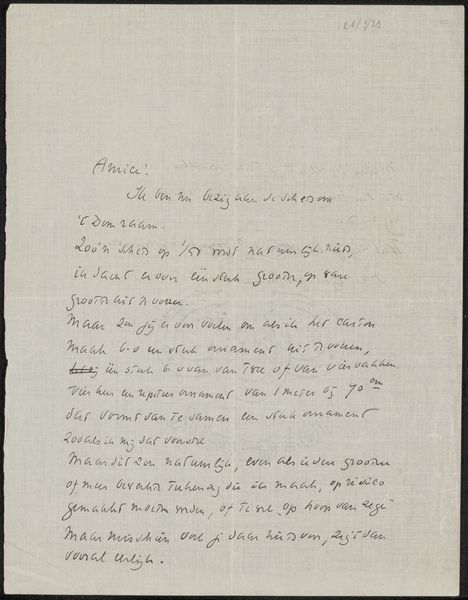 Amice!
Ik ben nu bezig aan de schets om
't Dom raam.
Zoo'n schets op 1/50 wordt natuurlijk niets,
ik dacht er over één stuk grooter, op ware
grootte uit te voeren.
Maar zou jij er voor voelen om als ik het carton
maak b.v. een stuk ornament uit te voeren,
één stuk b.v. van van twee of van vier vakken.
Vier keer een repiteerornament van 1 meter bij 70 cm
dat vormt dan te samen een stuk ornament
zooals ik mij dat voorstel
Maar dit zou natuurlijk, even als ieder grootere
of meer bewerkte teekening die ik maak, op risico
gemaakt moeten worden, of te wel, op hoop van zege
Maar misschien voel je daar niets voor, zegt dan
vooral eerlijk.